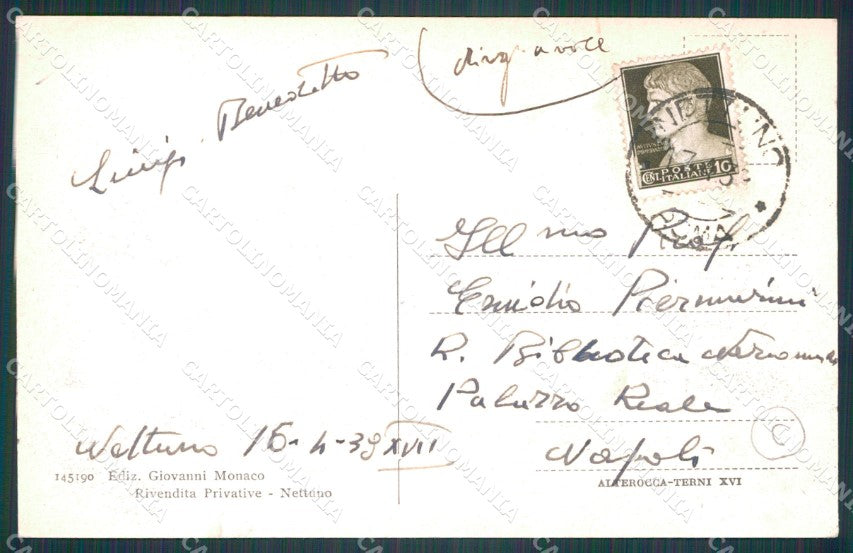 Luigi Benedetto
CENT. POSTE 10
ITALIANE
NETTUNO
ROMA
Ill mo Prof.
Emidio Piermarini
R. Biblioteca
Palazzo Reale
Napoli
Nettuno 16-4-39 XVII
145190 Ediz. Giovanni Monaco
Rivendita Privative - Nettuno
ALTEROCCA-TERNI XVI
C
CARTOLINOMANIA